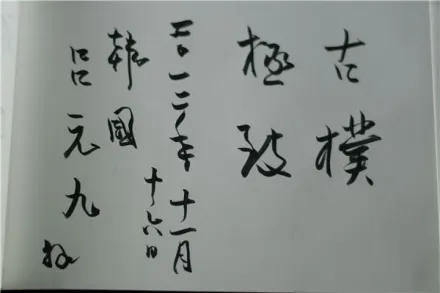 古樸
極致
二〇一二年十一月
十六日
韓國
呂元九